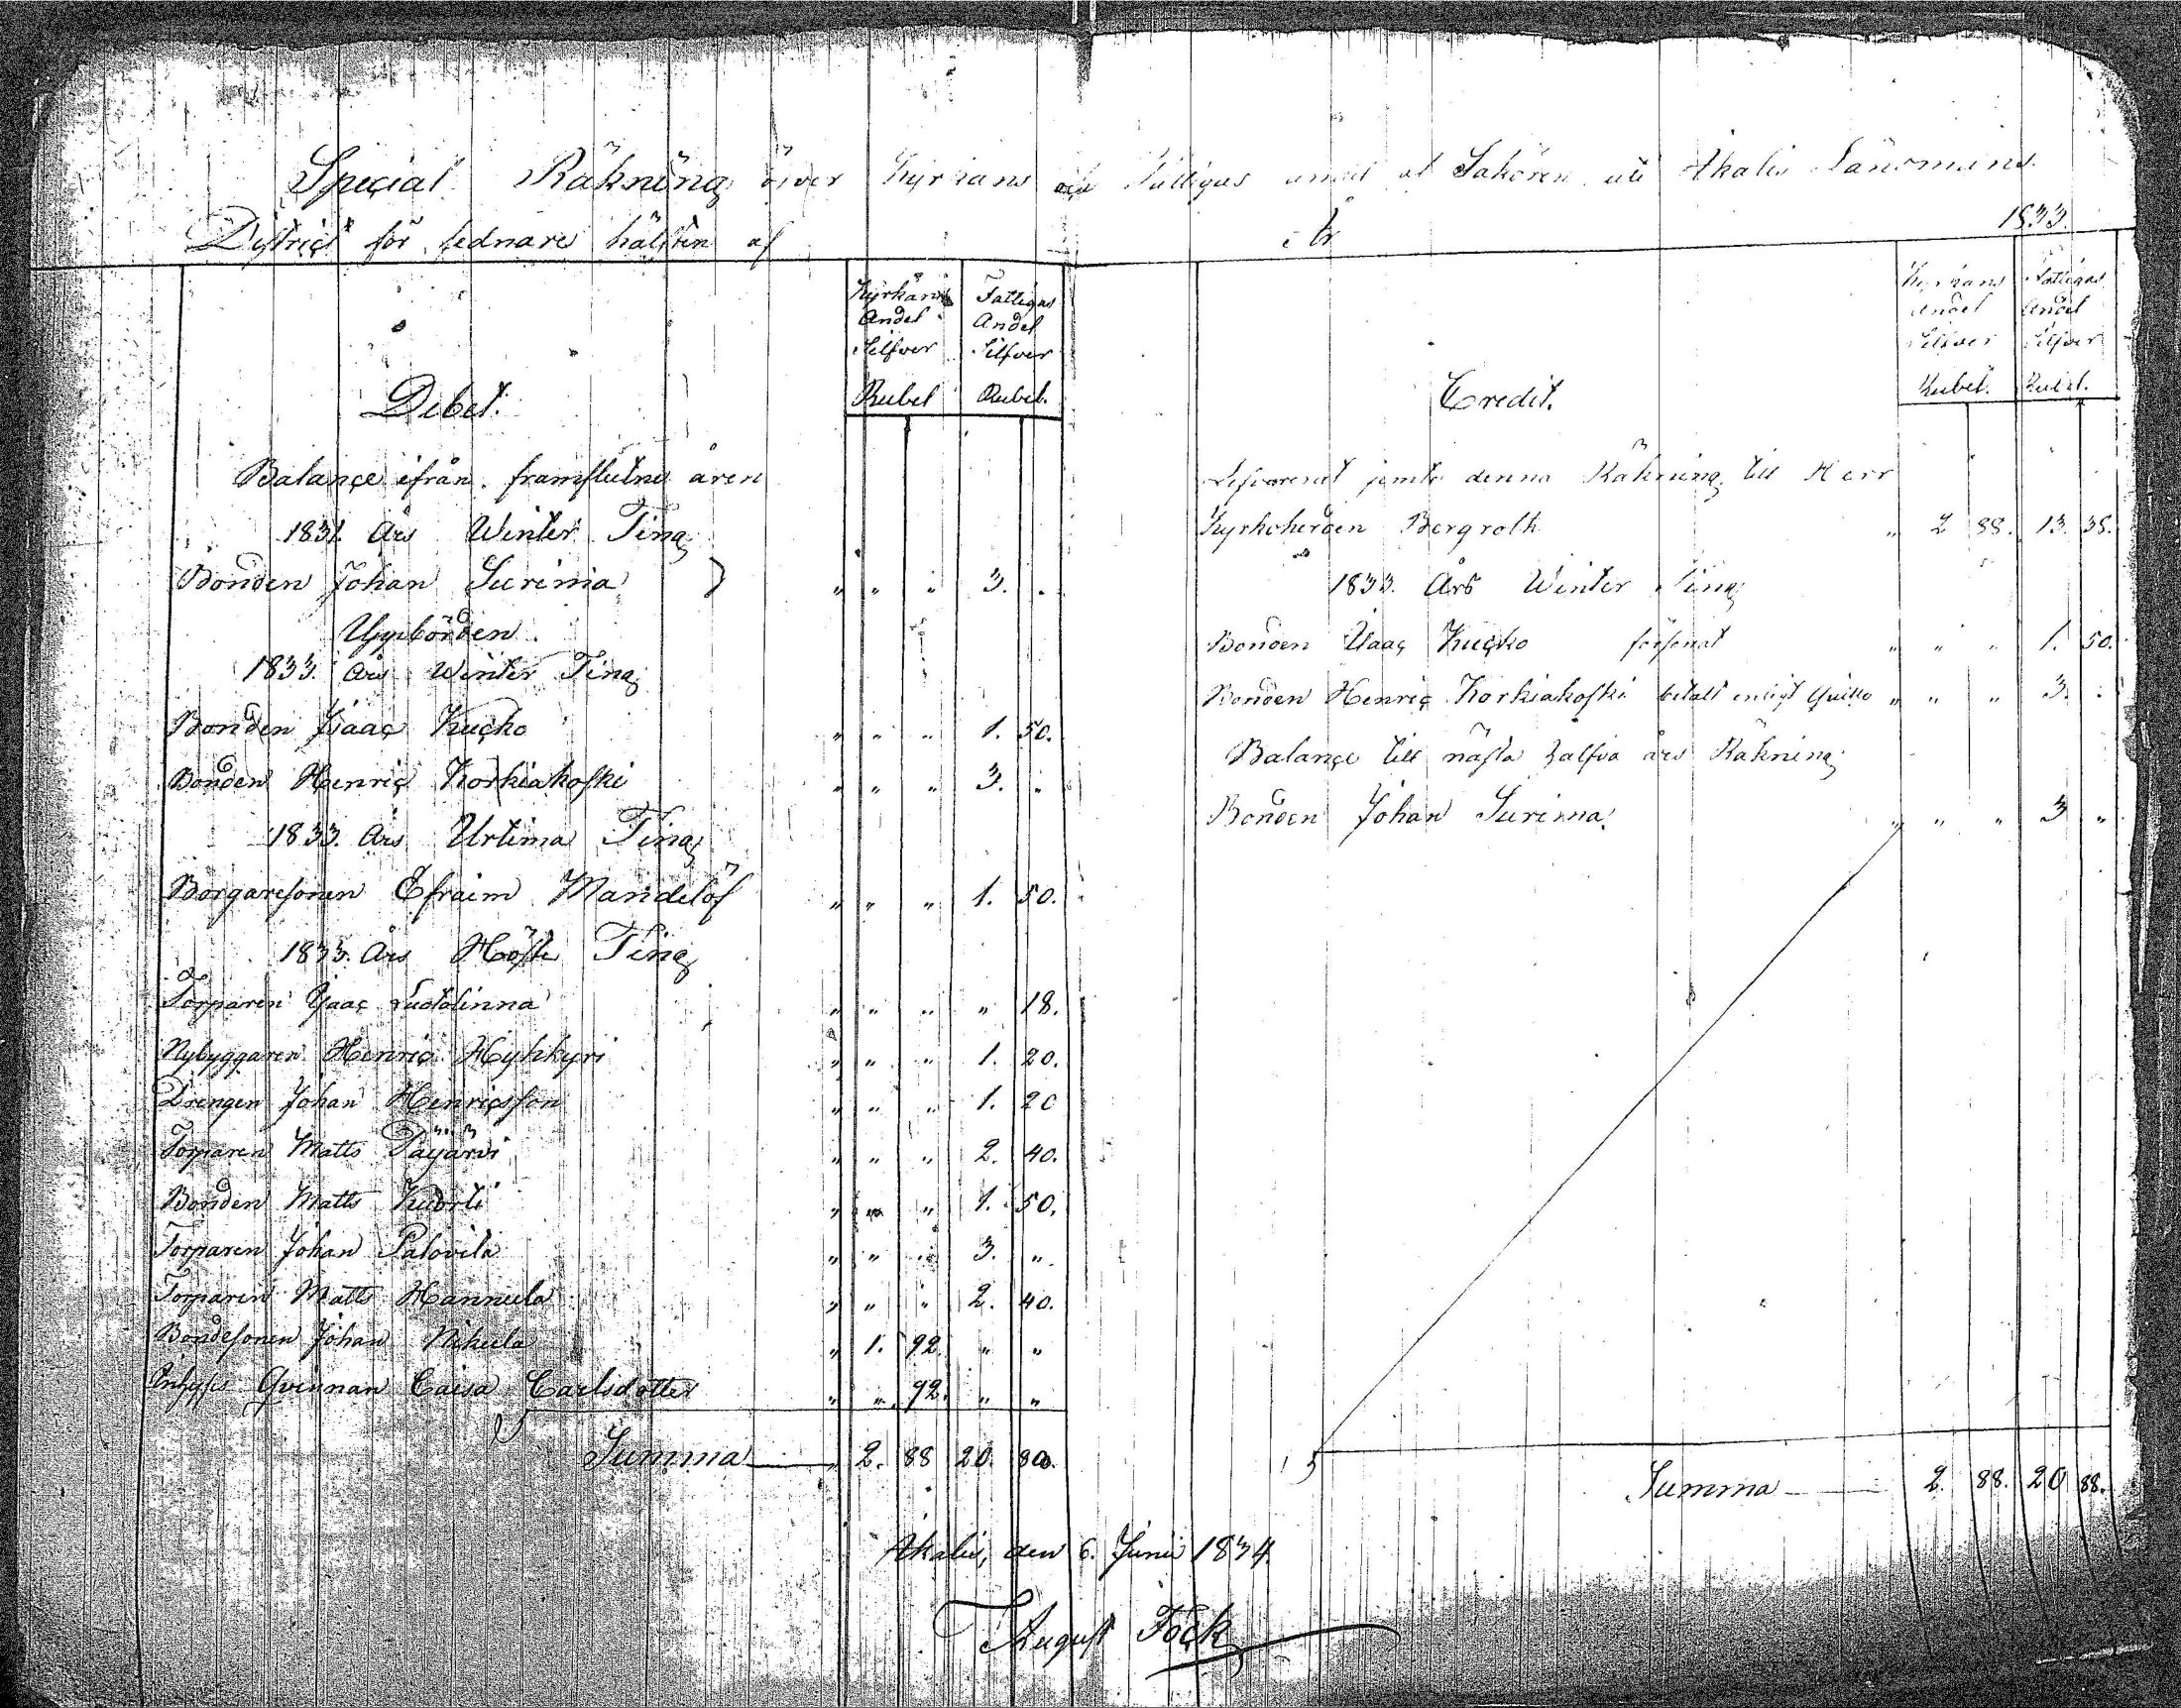 Special Räkning öfver Kyrkans och Fattigas andel af Sakören uti Åkalis Länsmans
District för sednare hälften af År 1833.
Kyrkans Andel Silfver Rubel
Fattigas Andel Silfver Rubel.
Debet.
Balançe ifrån framflutne åren
1831. Års Winter Ting
Bonden Johan Surinia } " " " 3. .
Uppbörden.
1833. Års Winter Ting
Bonden Isaac Kucko " " " 1. 50.
Bonden Henric Korkiakoski " " " 3. "
1833. Års Urtima Ting
Borgaresonen Efraim Mandelöf " " " 1. 50.
1833. Års Höste Ting
Torparen Isaac Luotolinna " " " " 18.
Nybyggaren Henric Hyhkyri " " " 1. 20.
Drengen Johan Henricsson " " " 1. 20
Torparen Matts Päijärvi " " " 2. 40.
Bonden Matts Kuorti " " " 1. 50.
Torparen Johan Palovila " " " 3. "
Torparen Matts Hannula " " " 2. 40.
Bondesonen Johan Nikula " 1. 92. " "
Inhyses Qvinnan Caisa Carlsdotter " " 92. " "
Summa 2. 88 20. 88.
Kyrkans Andel Silfver Rubel.
Fattigas Andel Silfver Rubel.
Credit.
Lefvererat jemte denna Räkning till Herr
Kyrkoherden Bergroth " 2 88. 13. 38.
1833. Års Winter Ting
Bonden Isaac Kucko försonat " " " 1. 50.
Bonden Henric Korkiakoski betalt enligt Quitto " " " 3. .
Balançe till nästa halfva års Räkning
Bonden Johan Surinna " " " 3 "
Summa 2. 88. 20 88.
Åkalis, den 6. Junii 1834.
August Fock